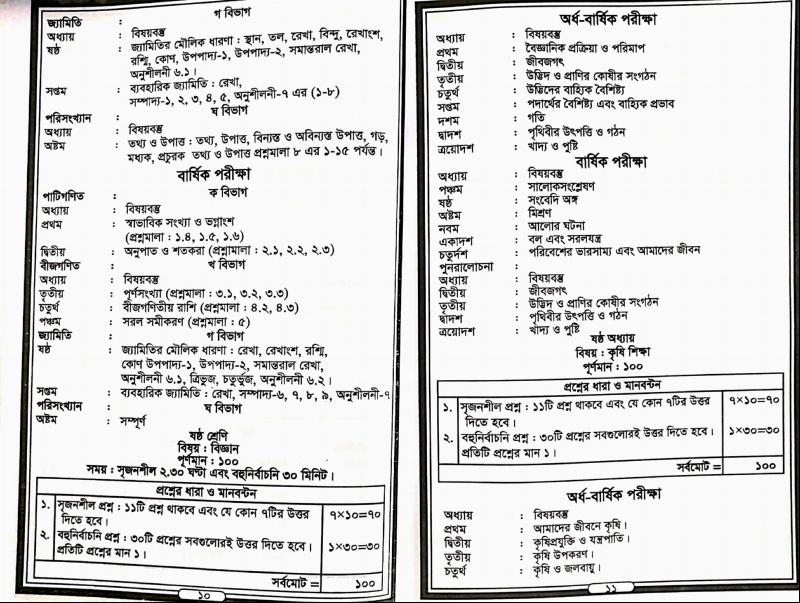 গ বিভাগ
জ্যামিতি :
অধ্যায় : বিষয়বস্তু
ষষ্ঠ : জ্যামিতির মৌলিক ধারণা : স্থান, তল, রেখা, বিন্দু, রেখাংশ,
রশ্মি, কোণ, উপপাদ্য-১, উপপাদ্য-২, সমান্তরাল রেখা,
অনুশীলনী ৬.১।
সপ্তম : ব্যবহারিক জ্যামিতি : রেখা,
সম্পাদ্য-১, ২, ৩, ৪, ৫, অনুশীলনী-৭ এর (১-৮)
ঘ বিভাগ
পরিসংখ্যান :
অধ্যায় : বিষয়বস্তু
অষ্টম : তথ্য ও উপাত্ত : তথ্য, উপাত্ত, বিন্যস্ত ও অবিন্যস্ত উপাত্ত, গড়,
মধ্যক, প্রচুরক তথ্য ও উপাত্ত প্রশ্নমালা ৮ এর ১-১৫ পর্যন্ত।
বার্ষিক পরীক্ষা
ক বিভাগ
পাটিগণিত :
অধ্যায় : বিষয়বস্তু
প্রথম : স্বাভাবিক সংখ্যা ও ভগ্নাংশ
(প্রশ্নমালা : ১.৪, ১.৫, ১.৬)
দ্বিতীয় : অনুপাত ও শতকরা (প্রশ্নমালা : ২.১, ২.২, ২.৩)
বীজগণিত : খ বিভাগ
অধ্যায় : বিষয়বস্তু
তৃতীয় : পূর্ণসংখ্যা (প্রশ্নমালা : ৩.১, ৩.২, ৩.৩)
চতুর্থ : বীজগণিতীয় রাশি (প্রশ্নমালা : ৪.২, ৪.৩)
পঞ্চম : সরল সমীকরণ (প্রশ্নমালা : ৫)
জ্যামিতি : গ বিভাগ
ষষ্ঠ : জ্যামিতির মৌলিক ধারণা : রেখা, রেখাংশ, রশ্মি,
কোণ উপপাদ্য-১, উপপাদ্য-২, সমান্তরাল রেখা,
অনুশীলনী ৬.১, ত্রিভুজ, চতুর্ভুজ, অনুশীলনী ৬.২।
সপ্তম : ব্যবহারিক জ্যামিতি : রেখা, সম্পাদ্য-৬, ৭, ৮, ৯, অনুশীলনী-৭
পরিসংখ্যান : ঘ বিভাগ
অষ্টম : সম্পূর্ণ
ষষ্ঠ শ্রেণি
বিষয় : বিজ্ঞান
পূর্ণমান : ১০০
সময় : সৃজনশীল ২.৩০ ঘন্টা এবং বহুনির্বাচনি ৩০ মিনিট।
প্রশ্নের ধারা ও মানবন্টন
১. সৃজনশীল প্রশ্ন : ১১টি প্রশ্ন থাকবে এবং যে কোন ৭টির উত্তর ৭×১০=৭০
দিতে হবে।
২. বহুনির্বাচনি প্রশ্ন : ৩০টি প্রশ্নের সবগুলোরই উত্তর দিতে হবে। ১×৩০=৩০
প্রতিটি প্রশ্নের মান ১।
সর্বমোট = ১০০
১০
অর্ধ-বার্ষিক পরীক্ষা
অধ্যায় : বিষয়বস্তু
প্রথম : বৈজ্ঞানিক প্রক্রিয়া ও পরিমাপ
দ্বিতীয় : জীবজগৎ
তৃতীয় : উদ্ভিদ ও প্রাণির কোষীয় সংগঠন
চতুর্থ : উদ্ভিদের বাহ্যিক বৈশিষ্ট্য
সপ্তম : পদার্থের বৈশিষ্ট্য এবং বাহ্যিক প্রভাব
দশম : গতি
দ্বাদশ : পৃথিবীর উৎপত্তি ও গঠন
ত্রয়োদশ : খাদ্য ও পুষ্টি
বার্ষিক পরীক্ষা
অধ্যায় : বিষয়বস্তু
পঞ্চম : সালোকসংশ্লেষণ
ষষ্ঠ : সংবেদি অঙ্গ
অষ্টম : মিশ্রণ
নবম : আলোর ঘটনা
একাদশ : বল এবং সরলযন্ত্র
চতুর্দশ : পরিবেশের ভারসাম্য এবং আমাদের জীবন
পুনরালোচনা :
অধ্যায় : বিষয়বস্তু
দ্বিতীয় : জীবজগৎ
তৃতীয় : উদ্ভিদ ও প্রাণির কোষীয় সংগঠন
দ্বাদশ : পৃথিবীর উৎপত্তি ও গঠন
ত্রয়োদশ : খাদ্য ও পুষ্টি
ষষ্ঠ অধ্যায়
বিষয় : কৃষি শিক্ষা
পূর্ণমান : ১০০
প্রশ্নের ধারা ও মানবন্টন
১. সৃজনশীল প্রশ্ন : ১১টি প্রশ্ন থাকবে এবং যে কোন ৭টির উত্তর ৭×১০=৭০
দিতে হবে।
২. বহুনির্বাচনি প্রশ্ন : ৩০টি প্রশ্নের সবগুলোরই উত্তর দিতে হবে। ১×৩০=৩০
প্রতিটি প্রশ্নের মান ১।
সর্বমোট = ১০০
অর্ধ-বার্ষিক পরীক্ষা
অধ্যায় : বিষয়বস্তু
প্রথম : আমাদের জীবনে কৃষি।
দ্বিতীয় : কৃষিপ্রযুক্তি ও যন্ত্রপাতি।
তৃতীয় : কৃষি উপকরণ।
চতুর্থ : কৃষি ও জলবায়ু।
১১